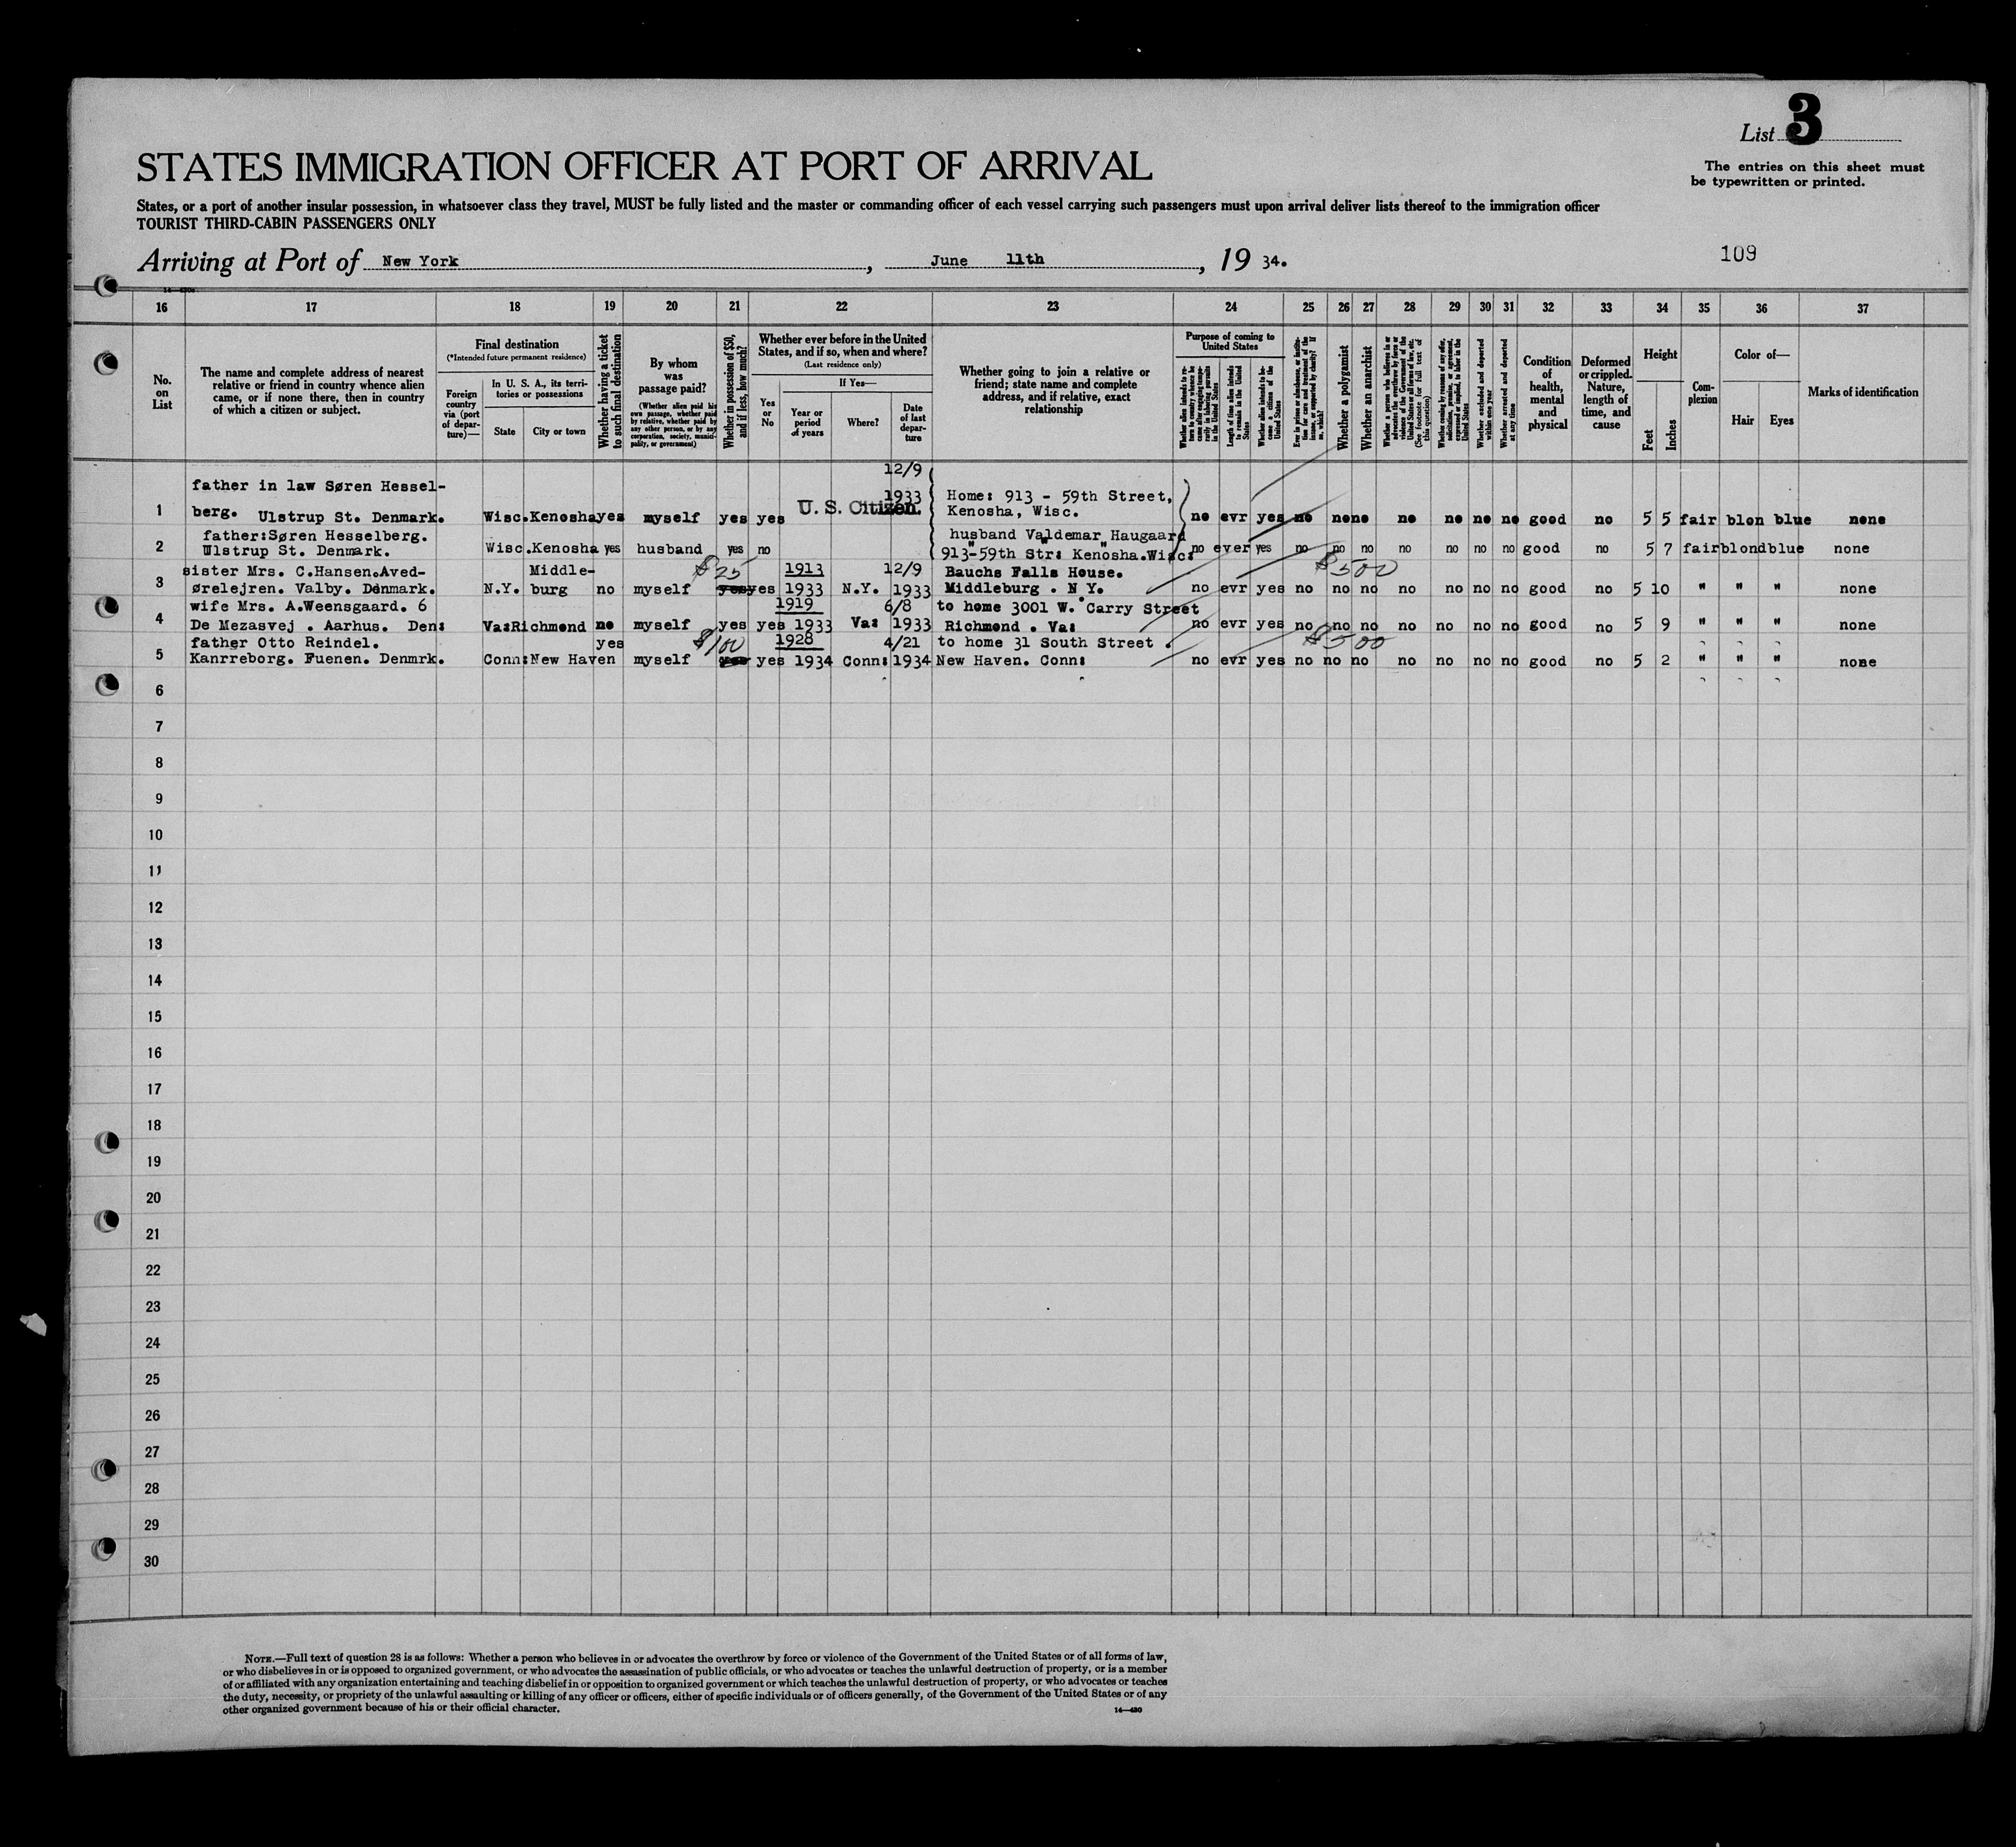 List 3
The entries on this sheet must
be typewritten or printed.
STATES IMMIGRATION OFFICER AT PORT OF ARRIVAL
States, or a port of another insular possession, in whatsoever class they travel, MUST be fully listed and the master or commanding officer of each vessel carrying such passengers must upon arrival deliver lists thereof to the immigration officer
TOURIST THIRD-CABIN PASSENGERS ONLY
Arriving at Port of New York, June 11th, 19 34.
109
16 17 18 19 20 21 22 23 24 25 26 27 28 29 30 31 32 33 34 35 36 37
No.
on
List
The name and complete address of nearest
relative or friend in country whence alien
came, or if none there, then in country
of which a citizen or subject.
Final destination
(*Intended future permanent residence)
Foreign
country
via (port
of depar-
ture)—
In U. S. A., its terri-
tories or possessions
State
City or town
Whether having a ticket
to such final destination
By whom
was
passage paid?
(Whether alien paid his
own passage, whether paid
by relative, whether paid by
any other person, or by any
corporation, society, munici-
pality, or government)
Whether in possession of $50,
and if less, how much?
Whether ever before in the United
States, and if so, when and where?
(Last residence only)
Yes
or
No
If Yes—
Year or
period
of years
Where?
Date
of last
depar-
ture
Whether going to join a relative or
friend; state name and complete
address, and if relative, exact
relationship
Purpose of coming to
United States
Length of time alien intends
to remain in the United
States
Whether alien intends to be-
come a citizen of the
United States
Whether a polygamist
Whether an anarchist
Whether excluded and deported
within one year
Whether arrested and deported
at any time
Condition
of
health,
mental
and
physical
Deformed
or crippled.
Nature,
length of
time, and
cause
Height
Feet
Inches
Com-
plexion
Color of—
Hair
Eyes
Marks of identification
12/9
father in law Søren Hessel-
1933 Home: 913 - 59th Street,
1 berg. Ulstrup St. Denmark. Wisc. Kenosha yes myself yes yes U. S. Citizen. Kenosha, Wisc. no evr yes no none no no no no good no 5 5 fair blon blue none
father:Søren Hesselberg. husband Valdemar Haugaard
2 Ulstrup St. Denmark. Wisc. Kenosha yes husband yes no 913-59th Str: Kenosha.Wisc: no ever yes no no no no no no no good no 5 7 fair blond blue none
sister Mrs. C.Hansen.Aved- Middle- $25 1913 12/9 Bauchs Falls House. $500
3 ørelejren. Valby. Denmark. N.Y. burg no myself yes yes 1933 N.Y. 1933 Middleburg . N Y. no evr yes no no no no no no no good no 5 10 " " " none
wife Mrs. A.Weensgaard. 6 1919 6/8 to home 3001 W. Carry Street
4 De Mezasvej . Aarhus. Den: Va: Richmond no myself yes yes 1933 Va: 1933 Richmond . Va: no evr yes no no no no no no no good no 5 9 " " " none
father Otto Reindel. yes $100 1928 4/21 to home 31 South Street . $500
5 Kanrreborg. Fuenen. Denmrk. Conn: New Haven myself yes yes 1934 Conn: 1934 New Haven. Conn: no evr yes no no no no no no no good no 5 2 " " " none
6
7
8
9
10
11
12
13
14
15
16
17
18
19
20
21
22
23
24
25
26
27
28
29
30
NOTE.—Full text of question 28 is as follows: Whether a person who believes in or advocates the overthrow by force or violence of the Government of the United States or of all forms of law,
or who disbelieves in or is opposed to organized government, or who advocates the assassination of public officials, or who advocates or teaches the unlawful destruction of property, or is a member
of or affiliated with any organization entertaining and teaching disbelief in or opposition to organized government or which teaches the unlawful destruction of property, or who advocates or teaches
the duty, necessity, or propriety of the unlawful assaulting or killing of any officer or officers, either of specific individuals or of officers generally, of the Government of the United States or of any
other organized government because of his or their official character.
14—430